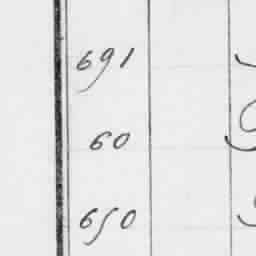 691
60
650